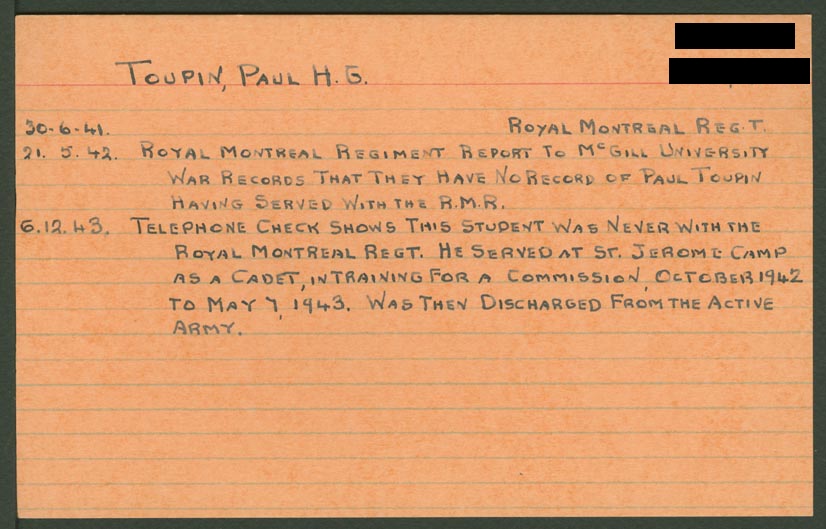 TOUPIN, PAUL H. G.
30-6-41. ROYAL MONTREAL REGT.
21. 5. 42. ROYAL MONTREAL REGIMENT REPORT TO McGILL UNIVERSITY
WAR RECORDS THAT THEY HAVE NO RECORD OF PAUL TOUPIN
HAVING SERVED WITH THE R.M.R.
6.12.43. TELEPHONE CHECK SHOWS THIS STUDENT WAS NEVER WITH THE
ROYAL MONTREAL REGT. HE SERVED AT ST. JEROME CAMP
AS A CADET, IN TRAINING FOR A COMMISSION, OCTOBER 1942
TO MAY 7, 1943. WAS THEN DISCHARGED FROM THE ACTIVE
ARMY.